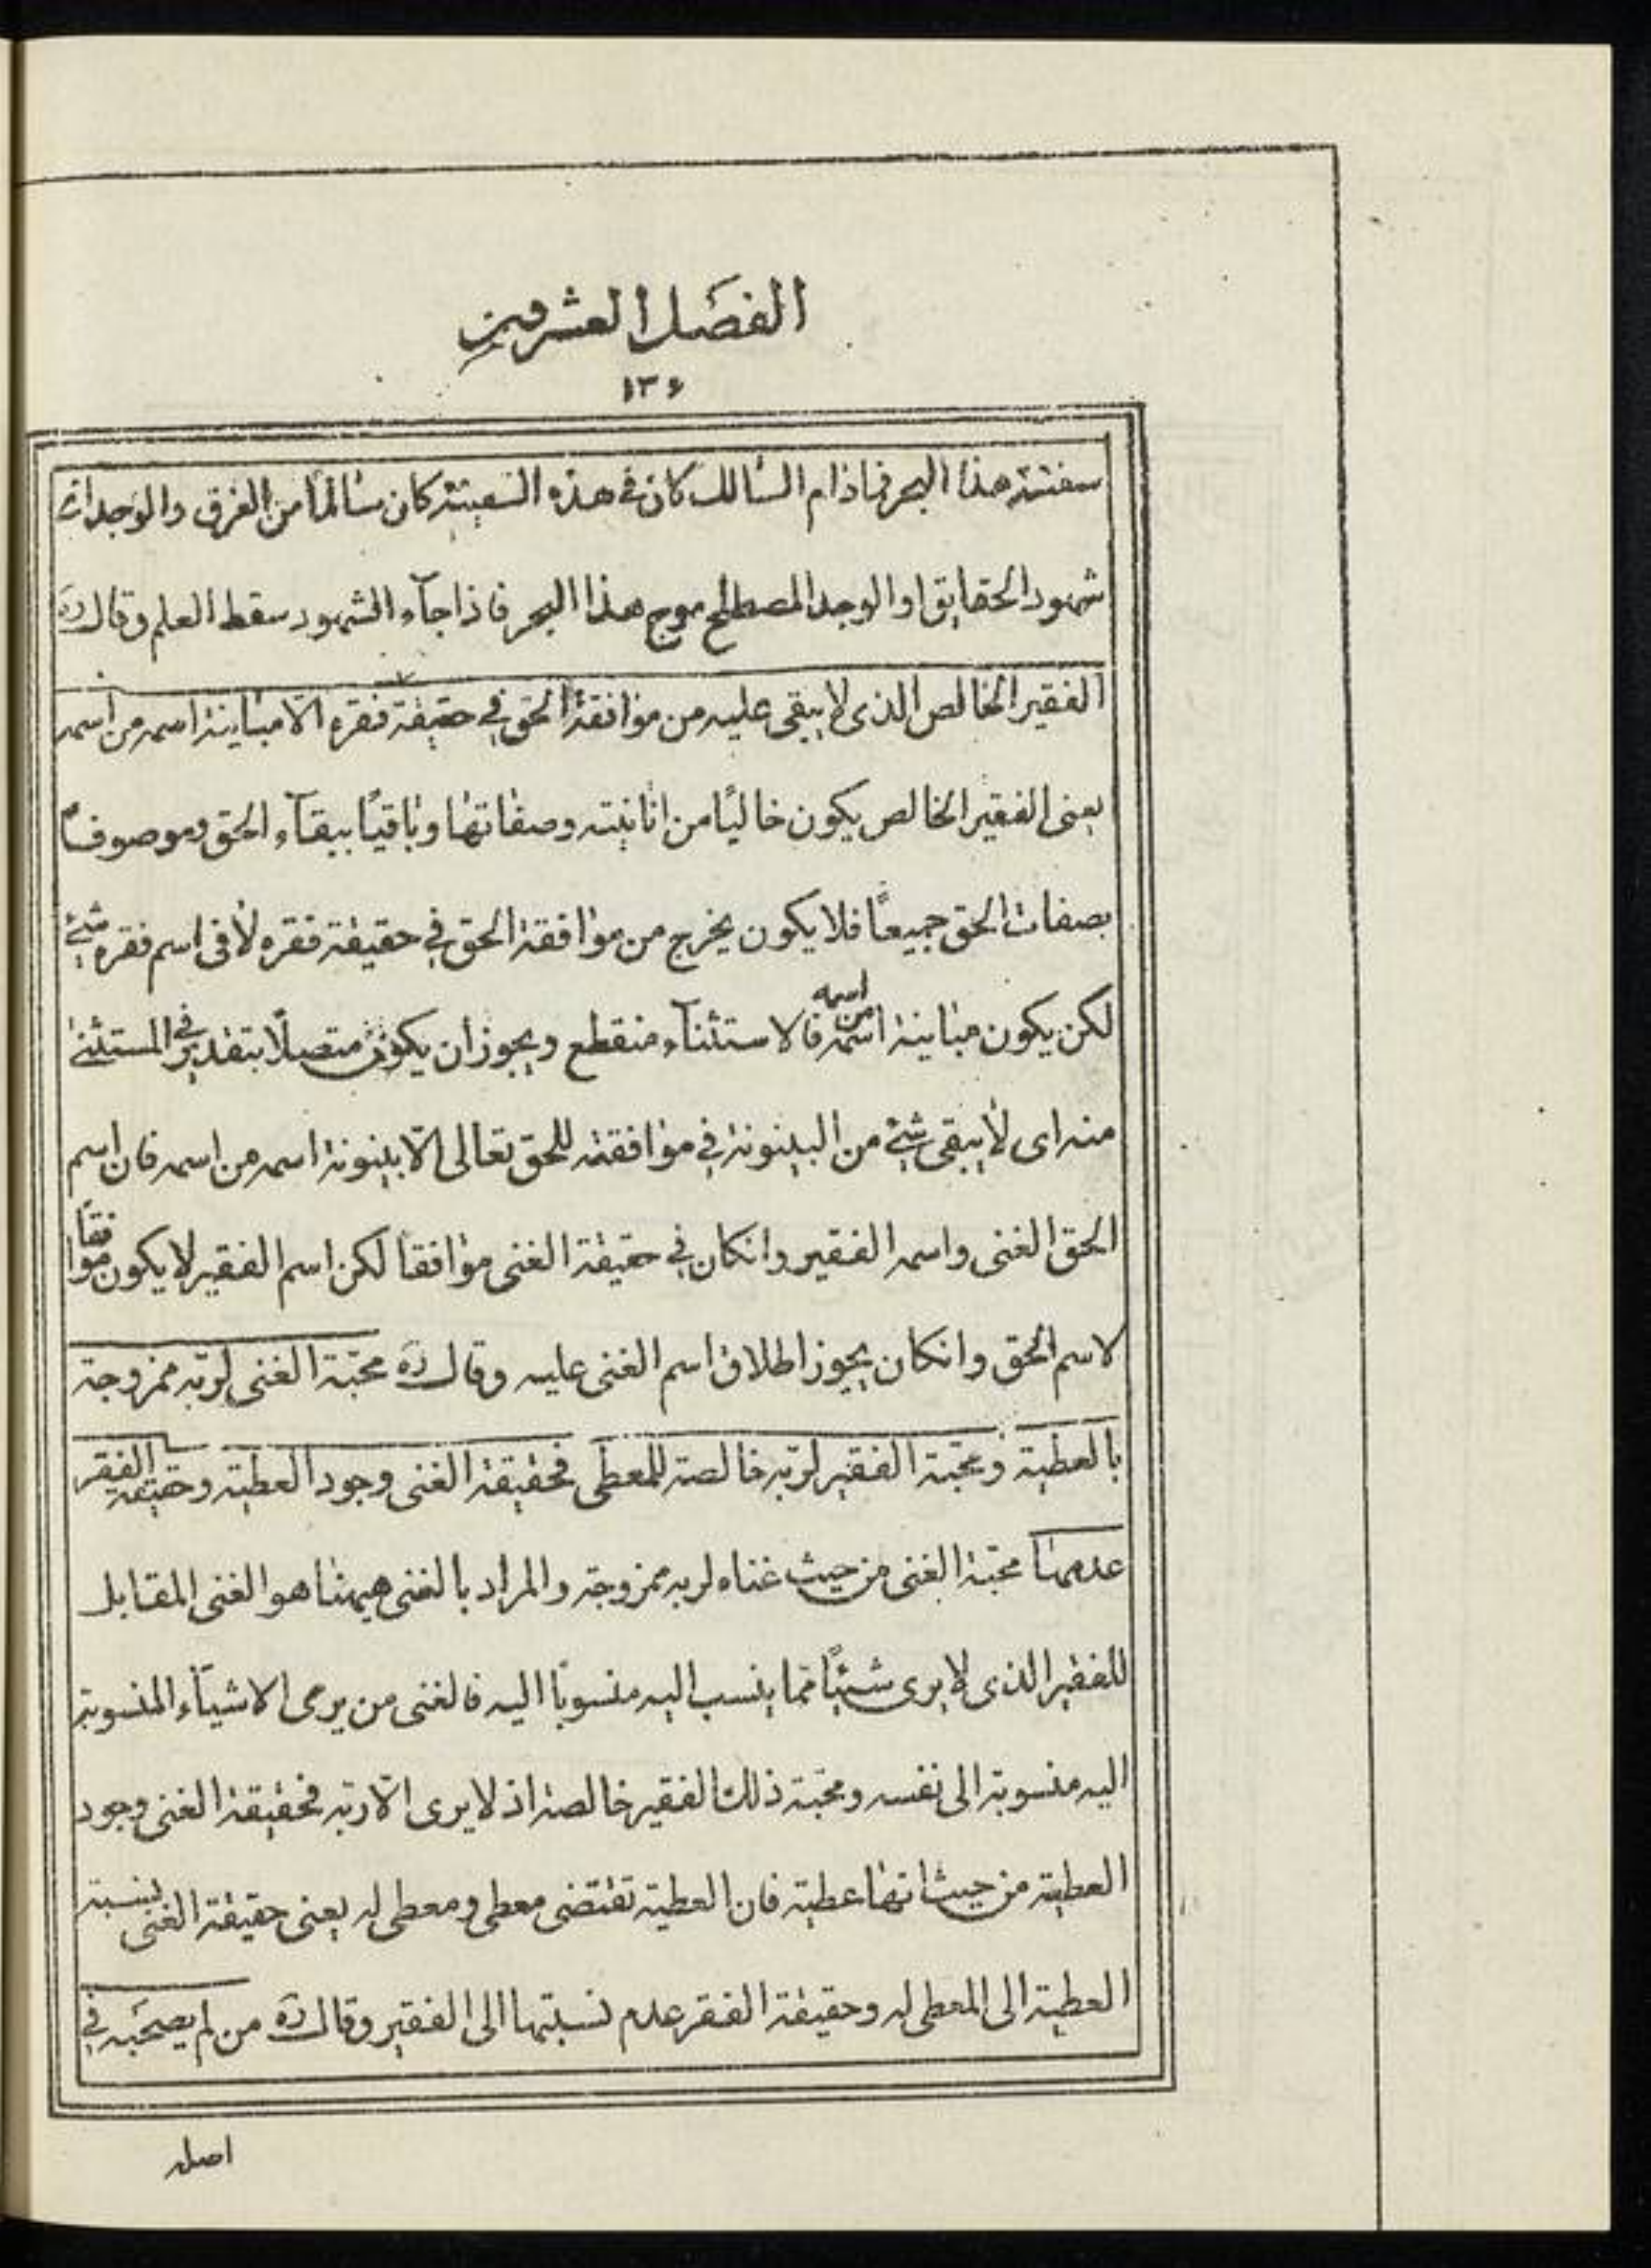 الفصل العشرون
١٣۶
سفينته هذا البحر فاذام السالك كان في هذه السفينة كان سالما من الغرق والوجدان
شهود الحقايق او الوجد المصطلح موج هذا البحر فاذا جآء الشهود سقط العلم وقال ره
الفقير الخالص الذى لا يبقى عليه من موافقة الحق في حقيقة فقره الا مباينة اسمه من اسمه
يعنى الفقير الخالص يكون خاليًا من انانيته وصفاتها وباقيًا ببقآء الحق وموصوفًا
بصفات الحق جميعًا فلا يكون يخرج من موافقة الحق في حقيقة فقره لا فى اسم فقره شئ
لكن يكون مباينة اسمه من اسمه فالاستثنآء منقطع ويجوز أن يكون متصلًا بتقدير في المستثنى
منه اى لا يبقى شئ من البينونة في موافقته للحق تعالى الّا بينونة اسمه من اسمه فان اسم
الحق الغنى واسمه الفقير وانكان في حقيقة الغنى موافقا لكن اسم الفقير لا يكون موافقًا
لاسم الحق وانكان يجوز اطلاق اسم الغنى عليه وقال ره محبّة الغنى لربّه ممزوجة
بالعطية ومحبّة الفقير لربّه خالصة للمعطى فحقيقة الغنى وجود العطية وحقيقة الفقر
عدمها محبّة الغنى من حيث غناه لربه ممزوجة والمراد بالغنى هيهنا هو الغنى المقابل
للفقير الذى لا يرى شيئًا مما ينسب اليه منسوبًا اليه فالغنى من يرى الاشيآء المنسوبة
اليه منسوبة الى نفسه ومحبّة ذلك الفقير خالصة اذ لا يرى الّا ربّه فحقيقة الغنى وجود
العطية من حيث انها عطية فان العطية تقتضى معطى ومعطى له يعنى حقيقة الغنى نسبة
العطية الى المعطى له وحقيقة الفقر عدم نسبتها الى الفقير وقال ره من لم يصحبه في
اصله